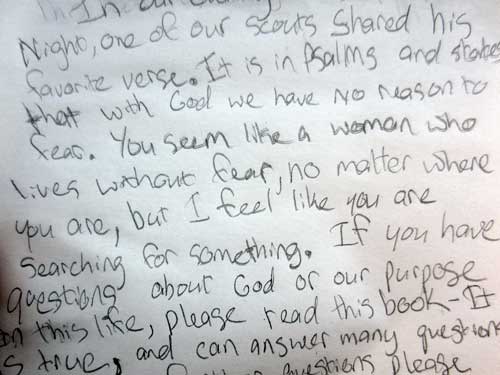 In our
Night, one of our scouts shared his
favorite verse. It is in Psalms and states
that with God we have no reason to
fear. You seem like a woman who
lives without fear, no matter where
you are, but I feel like you are
searching for something. If you have
questions about God or our purpose
in this life, please read this book - It
is true, and can answer many questions
questions please